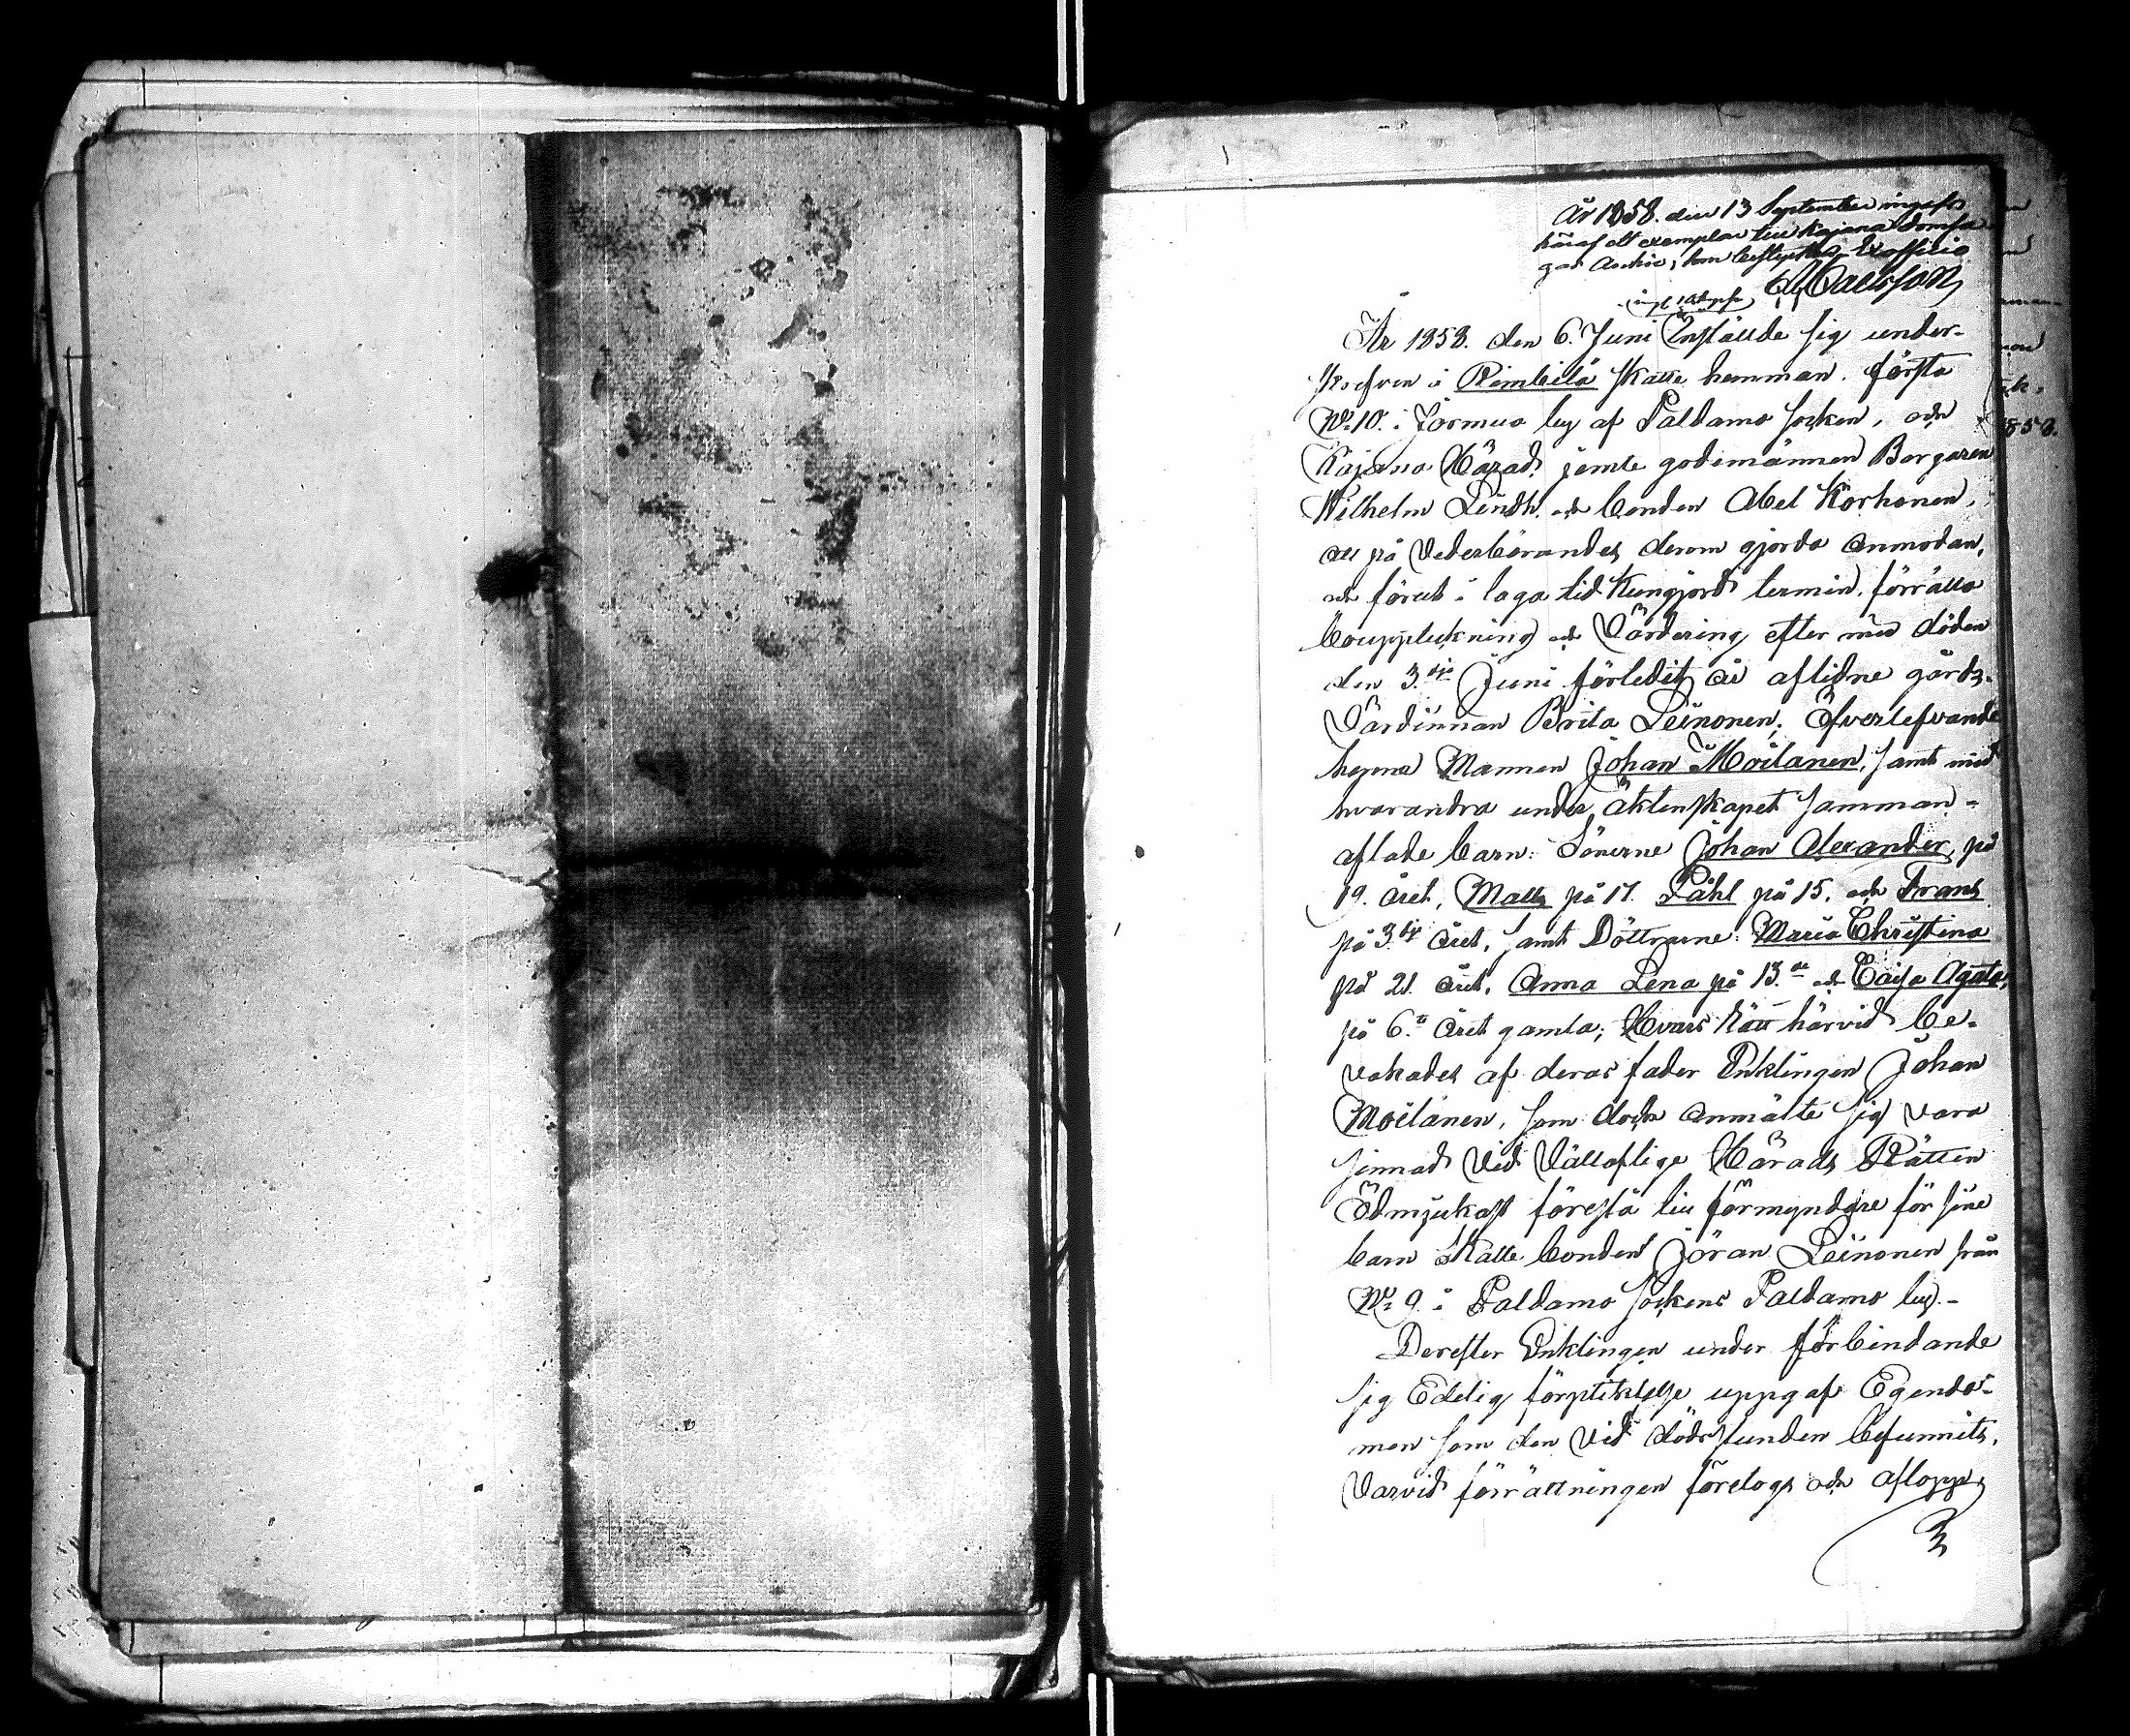 År 1858. den 13 September ingafs
häraf ett exemplar till Kajana Domsa
gas Archiv; som bestyrkes, Ex officio
Carlsson
År 1858. den 6. Juni Inställde sig under-
skrefven i Rimbilä skatte hemman första
No 10. i Jormua by af Paldamo socken, och
Kajana Härad, jemte godemännen Borgaren
Wilhelm Lindh och bonden Abel Korhonen,
att på Vederbörandes derom gjorda anmodan,
och förut i laga tid kungjord termin, förrätta
bouppteckning och Värdering efter med döden
den 3.dje Juni förledit år aflidne gårds-
Värdinnan Brita Leinonen, Öfverlefvande
hennes Mannen Johan Moilanen, samt med
hvarandra under äktenskapet samman-
aflade barn: Sönerne Johan Alexander, på
19. året, Matts på 17. Påhl på 15. och Frans
på 3.dje året, samt Döttrarne: Maria Christina
på 21. året, Anna Lena på 13.de och Caisa Agata,
på 6.te året gamla; Hvars rätt härvid be-
vakades af deras fader Enklingen Johan
Moilanen, som dock anmälte sig vara
sinnad vid Vällofliga Härads Rätten
Ödmjukast föreslå till förmyndare för sine
barn Skatte bonden Jöran Leinonen från
No 9. i Paldamo Sockens Paldamo by. -
Derefter Enklingen under förbindande
sig Edelig förpliktelse uppgaf Egendo-
men som den Vid dödsstunden befunnits,
Varvid förrättningen företogs och aflopp;